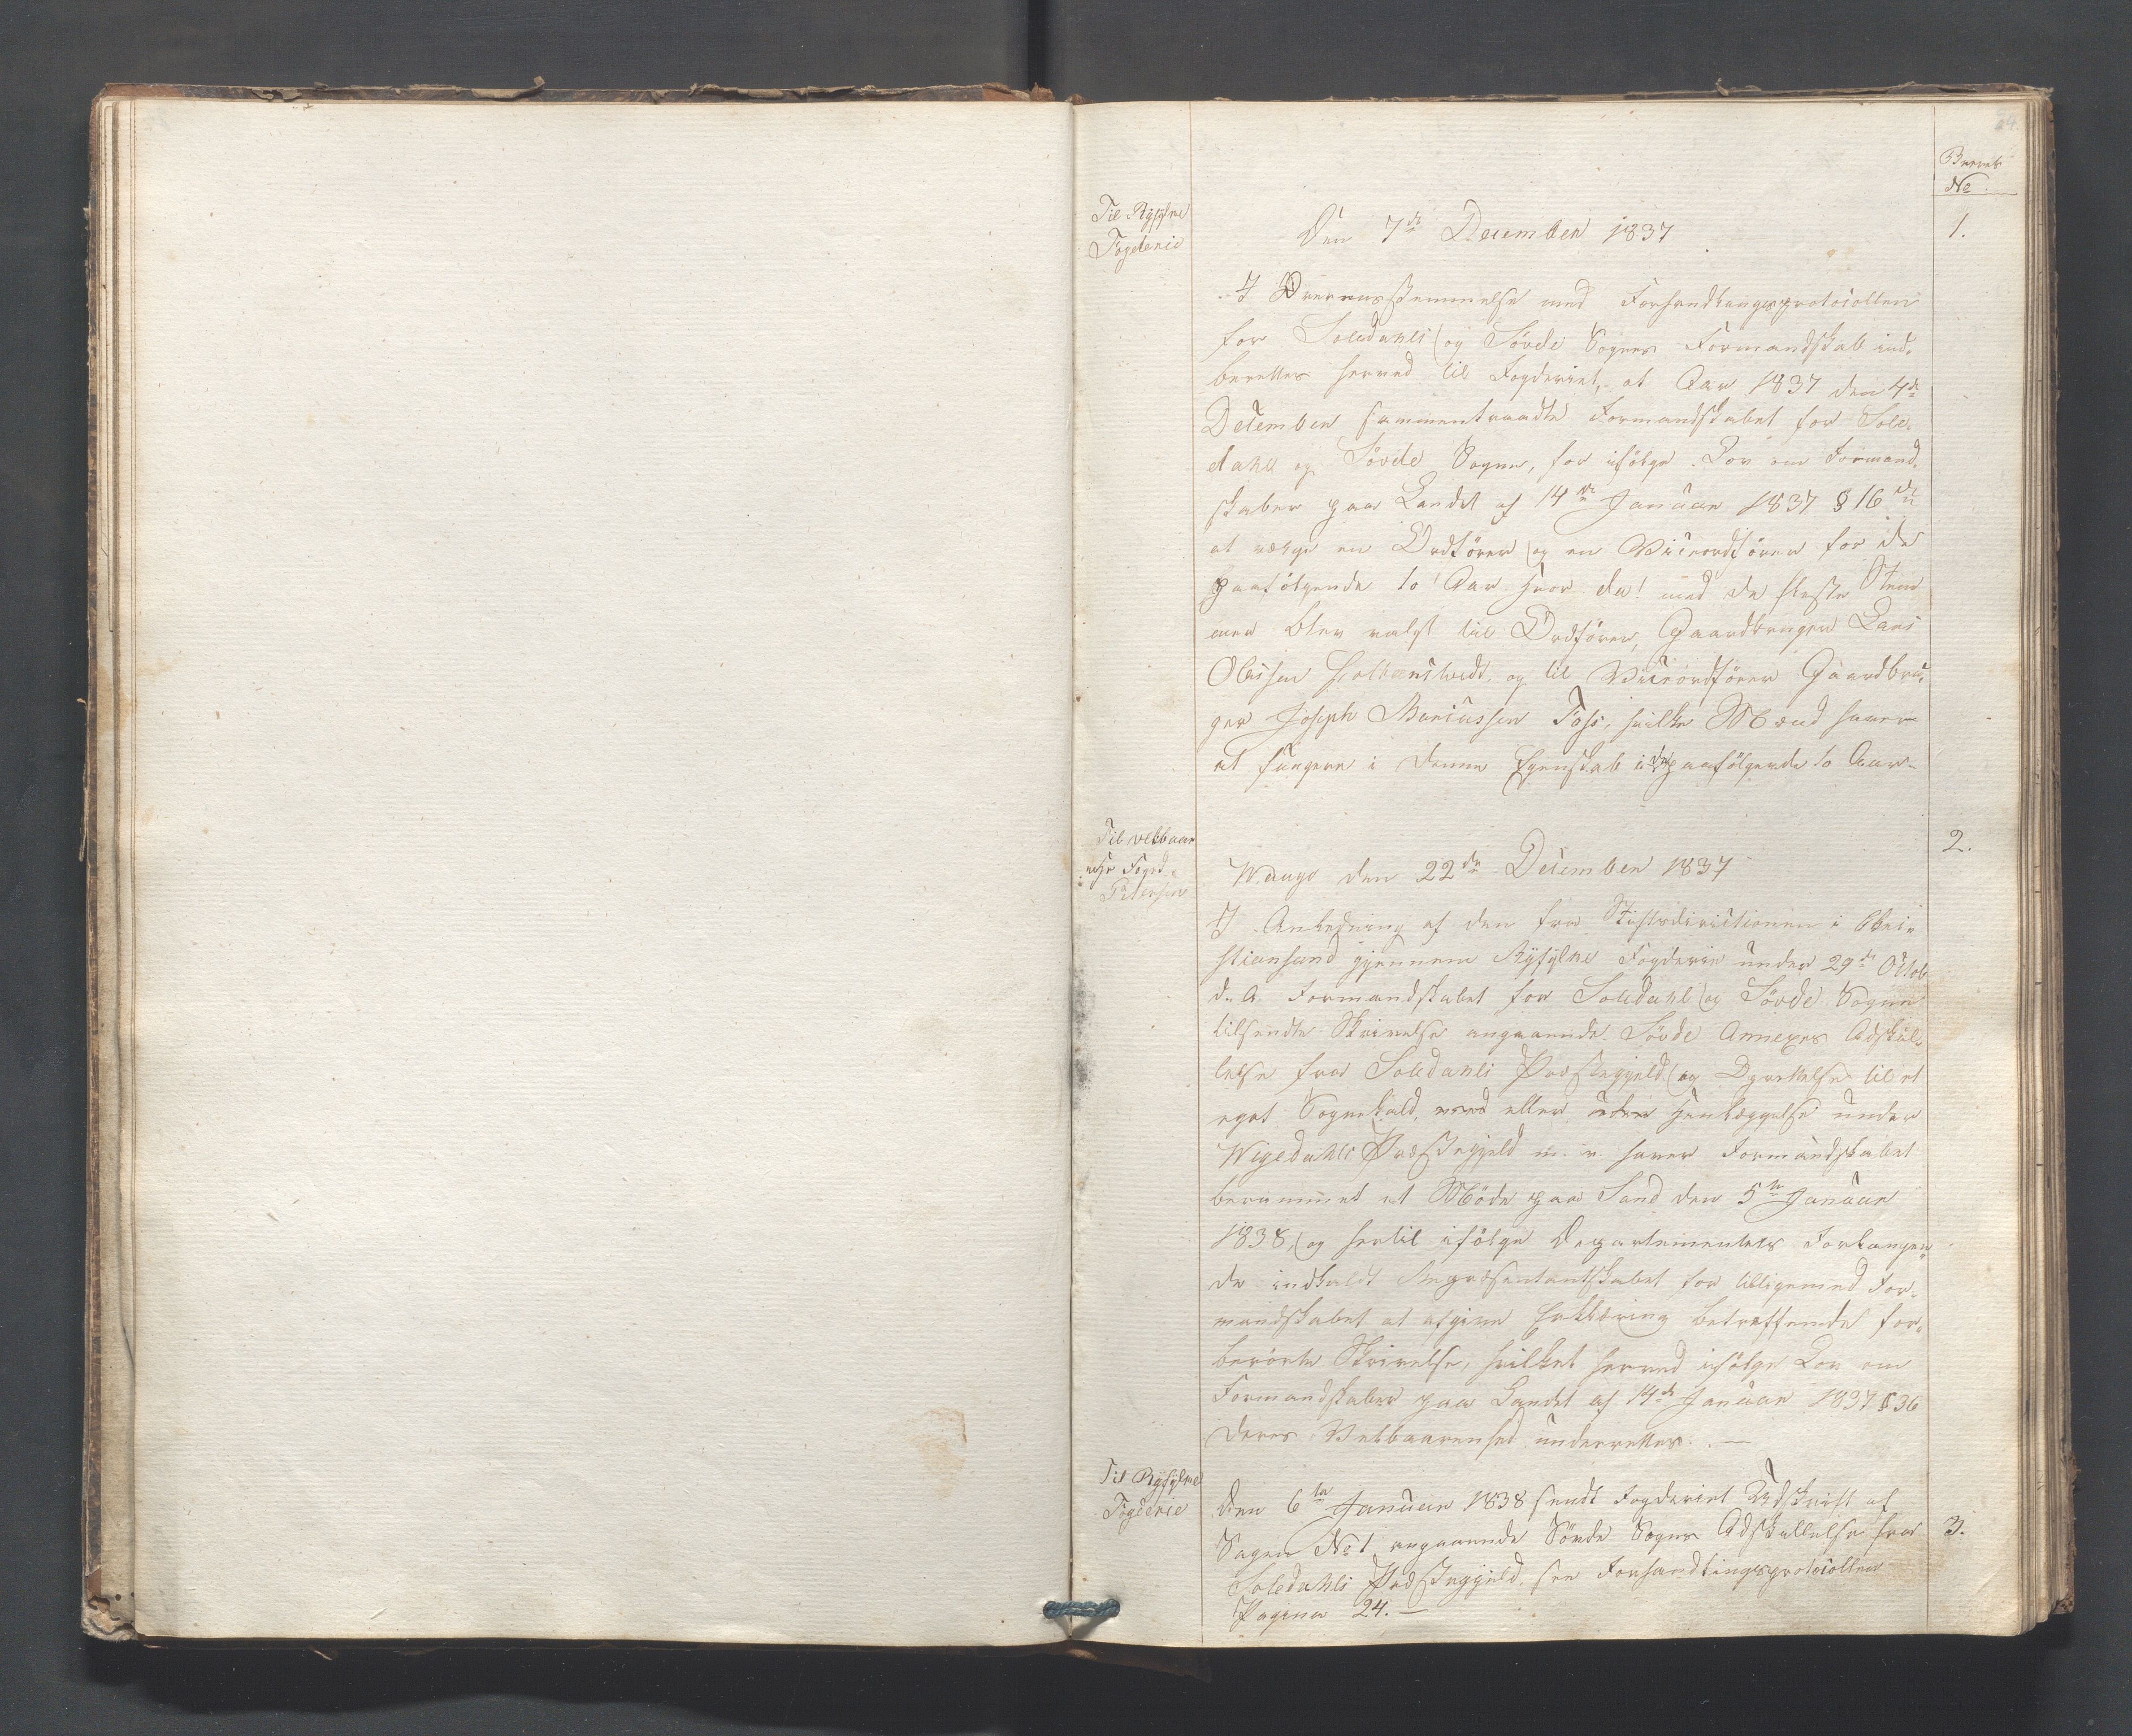 24.
Brevets
No.
Til Ryfylke
Fogderie
Den 7de December 1837
1.
I Overensstemmelse med Forhandlingsprotocollen
for Soledahls og Søvde Sognes Formandskab ind-
berettes herved til Fogderiet, at Aar 1837 den 4de
December sammentraadte Formandskabet for Sole-
dahls og Søvde Sogne, for ifølge Lov om Formand-
skaber paa Landet af 14de Januar 1837 § 16de
at vælge en Ordfører og en Viceordfører for de
paafølgende to Aar hvor da! med de fleste Stem
mer blev valgt til Ordfører, Gaardbruger Lars
Olaisen og til Viceordfører Gaardbru-
ger Joseph Foss, hvilke Mænd haver
at fungere i denne Egenskab i de paafølgende to Aar.
Til velbaar
ne Hr Foged
Petersen
2.
Wange den 22de December 1837
I Anledning af den fra Stiftsdirictionen i Chri-
stiansand gjennem Ryfylke Fogderie under 29de Octob
d. A. Formandskabet for Soledahls og Søvde Sogne
tilsendte Skrivelse angaaende Søvde Annexes Adskil-
lelse fra Soledahls Præstegjeld og Oprettelse til et
eget Sognekald, med eller uden Henlæggelse under
Wigedahls Præstegjeld m. v. haver Formandskabet
berammet et Møde paa Sand den 5te Januar
1838, og hertil ifølge Departementets Forlangen-
de indkaldt Repræsentantskabet for tilligemed For-
mandskabet at afgive Erklæring betreffende for-
berørte Skrivelse, hvilket herved ifølge Lov om
Formandskaber paa Landet af 14de Januar 1837 § 36
Deres Velbaarenhed underrettes. —
Til Ryfylke
Fogderie
Den 6te Januar 1838 sendt Fogderiet Udskrift af
Sagen No 1 angaaende Søvde Sognes Adskillelse fra
3.
Soledahls Præstegjeld, see Forhandlingsprotocollen
Pagina 24. —